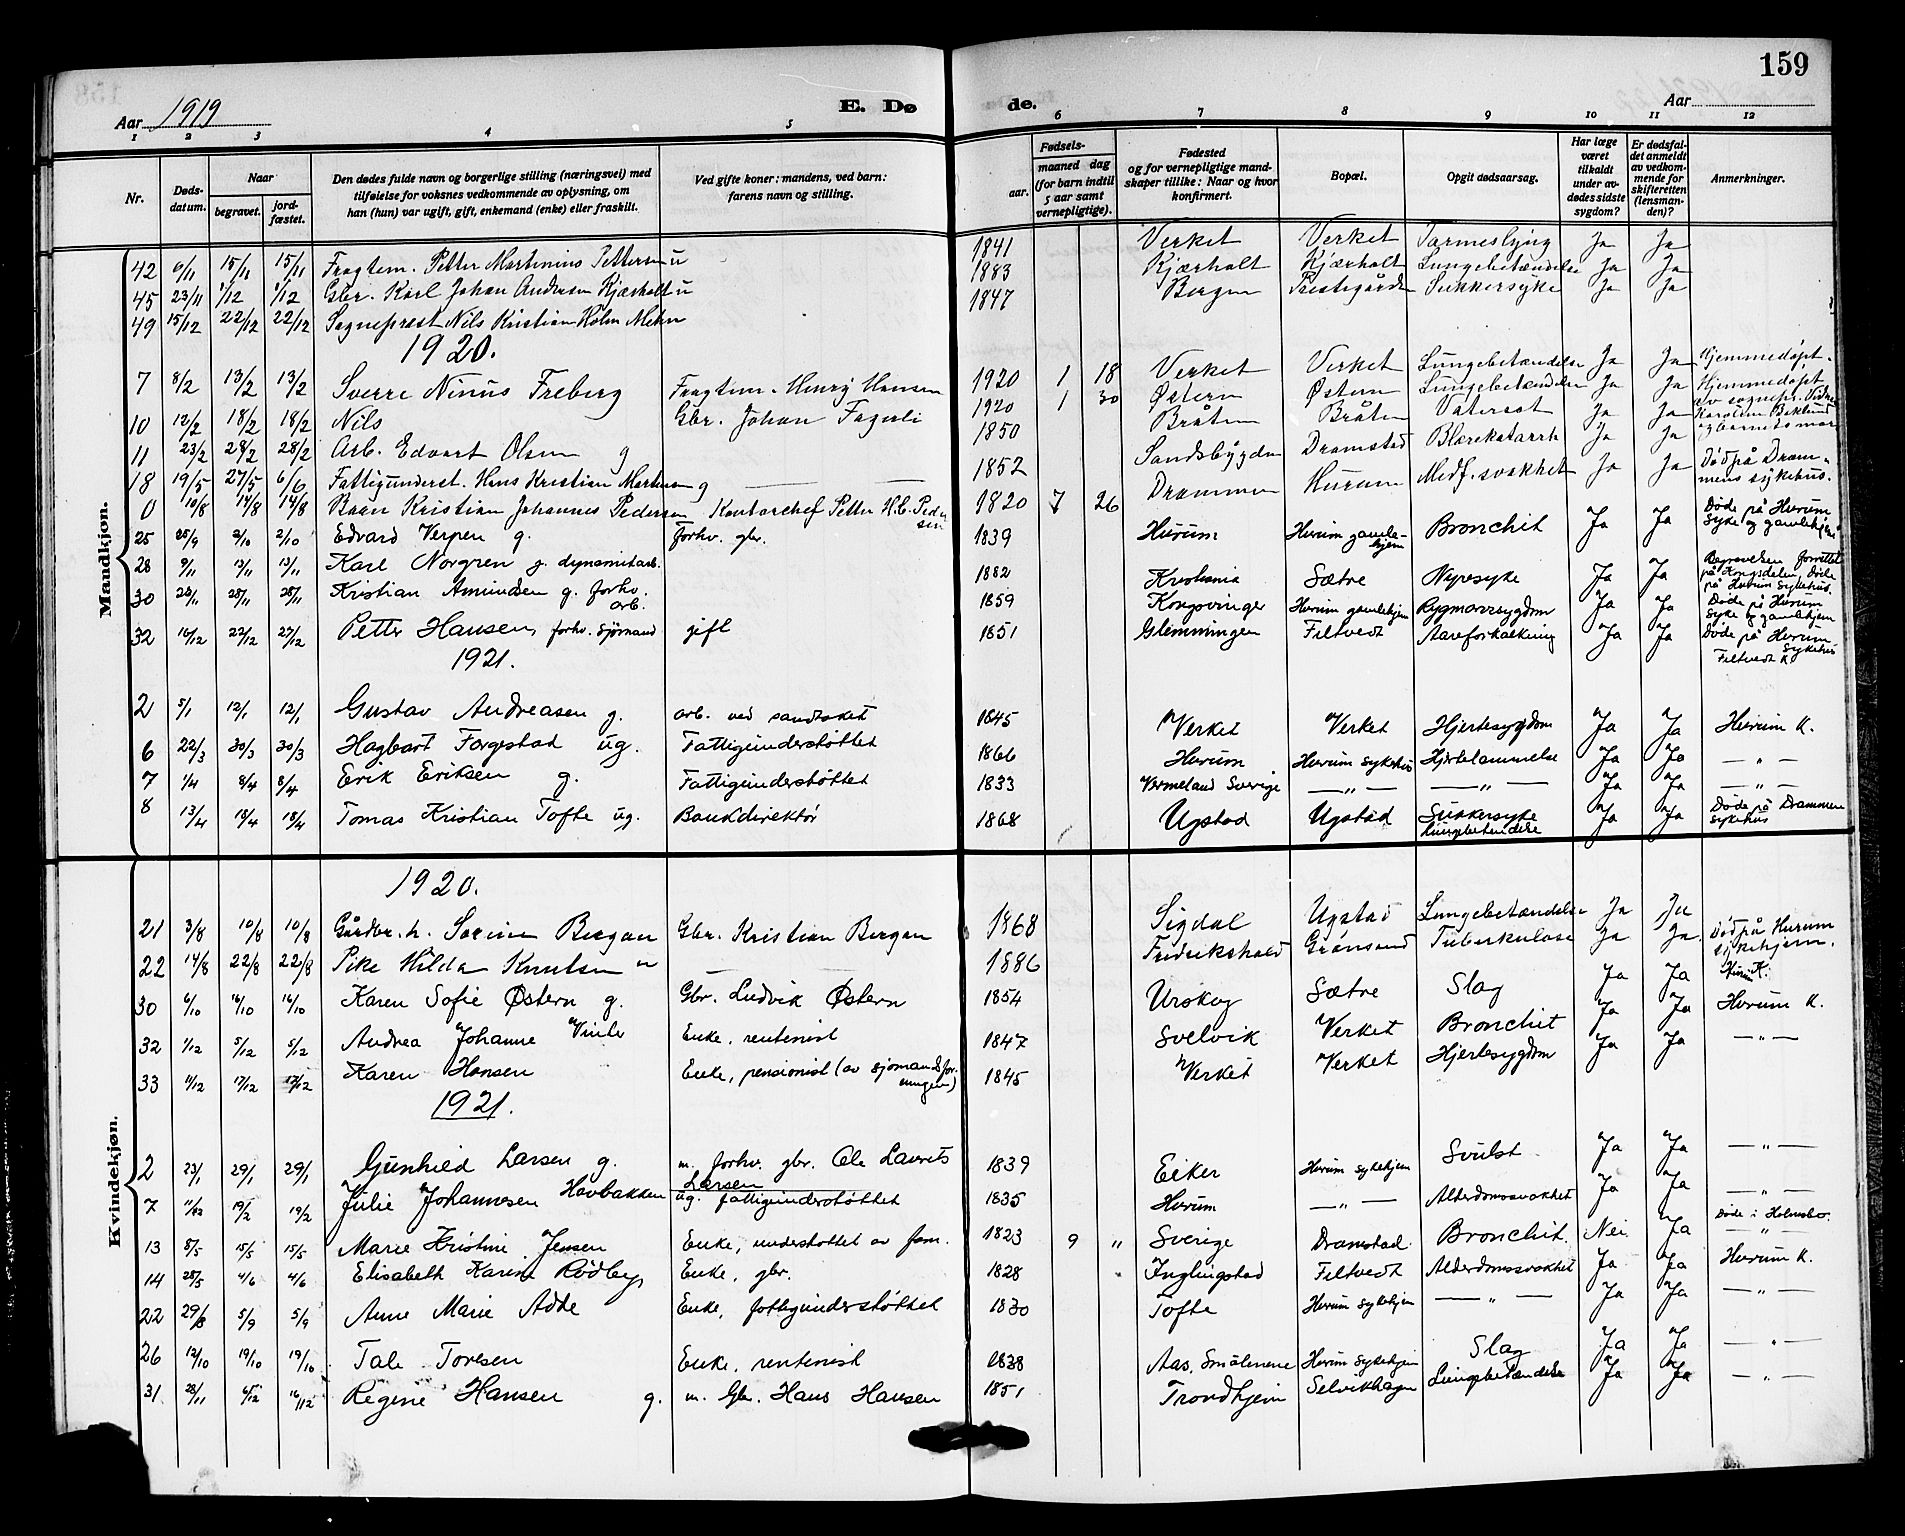 159
Aar 1919 E. Døde. Aar
1 2 3 4 5 6 7 8 9 10 11 12
Nr. Døds-datum. Naar begravet. jord-fæstet. Den dødes fulde navn og borgerlige stilling (næringsvei) med tilføielse for voksnes vedkommende av oplysning, om han (hun) var ugift, gift, enkemand (enke) eller fraskilt. Ved gifte koner: mandens, ved barn: farens navn og stilling. Fødsels- aar. maaned dag (for barn indtil 5 aar samt vernepligtige). Fødested og for vernepligtige mandskaper tillike: Naar og hvor konfirmert. Bopæl. Opgit dødsaarsag. Har læge været tilkaldt under avdødes sidste sygdom? Er dødsfaldet anmeldt av vedkommende for skifteretten (lensmanden)? Anmerkninger.
Mandkjøn.
42 6/11 15/11 15/11 Fragtem. Petter Martinius Pettersen u 1841 Verket Verket Tarmeslyng Ja Ja
45 23/11 1/12 1/12 Gbr. Karl Johan Andersen Kjærholt u 1883 Kjærholt Kjærholt Lungebetændelse Ja Ja
49 15/12 22/12 22/12 Sogneprest Nils Kristian Holm 1847 Bergen Prestegården Sukkersyke Ja Ja
1920.
7 8/2 13/2 13/2 Sverre Ninus Freberg Fragtem. Henry Hansen 1920 1 18 Verket Verket Lungebetændelse Ja Ja Hjemmedøpt.
10 12/2 18/2 18/2 Nils Gbr. Johan Fagerli 1920 1 30 Østern Østern Lungebetændelse Ja Ja Hjemmedøpt av sognepr.
11 23/2 28/2 28/2 Arb. Edvart Olsen g 1850 Bråten Bråten Vatersot Ja Ja
18 19/5 27/5 6/6 Fattigunderst. Hans Kristian Martinsen g 1852 Sandsbygden Dramstad Blærekatarrh Ja Ja
0 10/8 14/8 14/8 Barn Kristian Johannes Pedersen Kontorchef Petter H.C. Pedersen 1820 7 26 Drammen Hurum Medf. svakhet Ja Ja Død på Drammens sykehus.
25 25/9 2/10 2/10 Edvard Verpen g. Forhv. gbr. 1839 Hurum Hurum gamlehjem Bronchit Ja Ja Døde på Hurum syke og gamlehjem
28 9/11 13/11 13/11 Karl Norgren g. dynamitarb. 1882 Kristiania Sætre Nyresyke Ja Ja Begravelsen forrettet på Kongsdelen, døde på Hurum sykehus.
30 23/11 28/11 28/11 Kristian Amundsen g. forhv. arb. 1859 Kongsvinger Hurum gamlehjem Rygmarvsygdom Ja Ja Døde på Hurum syke og gamlehjem
32 16/12 22/12 27/12 Petter Hansen, forhv. sjømand gift 1851 Glemmingen Filtvedt Aareforkalkning Ja Ja Døde på Hurum sykehus Filtvedt K
1921.
2 5/1 12/1 12/1 Gustav Andreasen g. arb. ved sandtaket 1845 Verket Verket Hjertesygdom Ja Ja Hurum K.
6 22/3 30/3 30/3 Hagbart Fargestad ug. Fattigunderstøttet 1866 Hurum Hurum sykehus Hjertelammelse Ja Ja — " —
7 1/4 8/4 8/4 Erik Eriksen g. Fattigunderstøttet 1833 Vermeland Sverige — " — — " — Ja Ja — " —
8 13/4 18/4 18/4 Tomas Kristian Tofte ug. Bankdirektør 1868 Ugstad Ugstad Sukkersyke lungbetendelse Ja Ja Døde på Drammen sykehus
Kvindekjøn.
1920.
21 3/8 10/8 10/8 Gårdbr. h. Sorine Bergan Gbr. Kristian Bergan 1868 Sigdal Ugstad Lungebetændelse Ja Ja
22 14/8 22/8 22/8 Pike Hilda Knutsen u 1886 Fredrikshald Grønsand Tuberkulose Ja Ja Død på Hurum sykehjem.
30 6/10 16/10 16/10 Karen Sofie Østern g. Gbr. Ludvik Østern 1854 Urskog Sætre Slag Ja Ja Hurum K.
32 1/12 5/12 5/12 Andrea Johanne Vinter Enke, rentenist 1847 Svelvik Verket Bronchit Ja Ja Hurum K.
33 11/12 17/12 17/12 Karen Hansen Enke, pensionist (av sjømandsforeningen) 1845 Verket Verket Hjertesygdom Ja Ja — " —
1921.
2 23/1 29/1 29/1 Gunhild Larsen g. m. forhv. gbr. Ole Laurits Larsen 1839 Eiker Hurum sykehjem Svulst Ja Ja — " —
7 11/2 19/2 19/2 Julie Johannesen Havbakken ug. fattigunderstøttet 1835 Hurum — " — Alderdomssvakhet Ja Ja — " —
13 8/5 15/5 15/5 Marie Kristine Jensen Enke, understøttet av fam. 1823 9 " Sverige Dramstad Bronchit Nei Ja Døde i Holmsbo. — " —
14 28/5 4/6 4/6 Elisabeth Karine Rødby Enke, gbr. 1828 Inglingstad Filtvedt Alderdomssvakhet Ja Ja Hurum K.
22 29/8 5/9 5/9 Anne Marie Adde Enke, fattigunderstøttet 1830 Tofte Hurum sykehjem — " — Ja Ja — " —
26 12/10 19/10 19/10 Tale Toresen Enke, rentenist 1838 Aas, Smålenene Hurum sykehjem Slag Ja Ja — " —
31 28/11 6/12 16/12 Regine Hansen g. m. Gbr. Hans Hansen 1851 Trondhjem Selvikhagen Lungebetændelse Ja Ja — " —